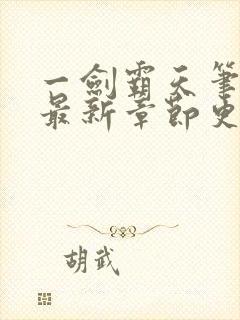 一劍霸天筆
最新章節史
胡武